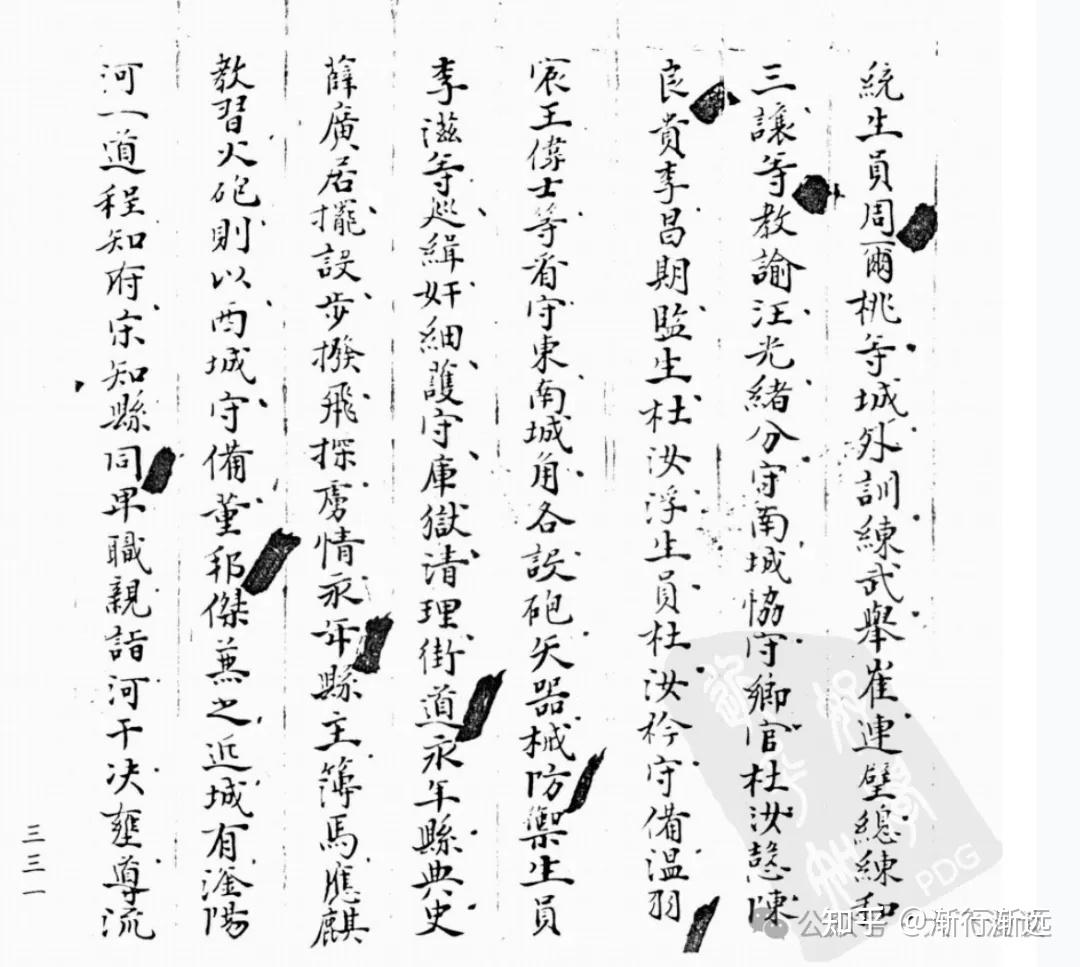 統生員周爾桃等城外訓練武舉崔連璧總練和
三讓等教諭汪光緒分守南城協守鄉官杜汝慤陳
良貴李昌期監生杜汝浮生員杜汝衿守備溫羽
宸王偉士等看守東南城角各設砲矢器械防禦生員
李滋等廵緝奸細護守庫獄清理街道永年縣典史
薛廣居擺設步撥飛探虜情永年縣主簿馬應麒
教習火砲則以西城守備董邦傑兼之近城有滏陽
河一道程知府宋知縣同卑職親詣河干决壅導流
三三一
PDG
知乎 @渐行渐选